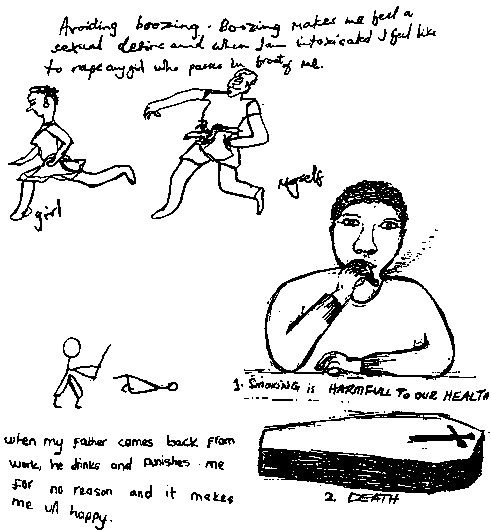 Avoiding boozing. Boozing makes me feel a
sexual desire and when I am intoxicated I feel like
to rape any girl who passes in front of me.
girl
Myself
1. SMOKING is HARMFULL TO OUR HEALTH
2. DEATH
when my father comes back from
work, he drinks and punishes me
for no reason and it makes
me un happy.